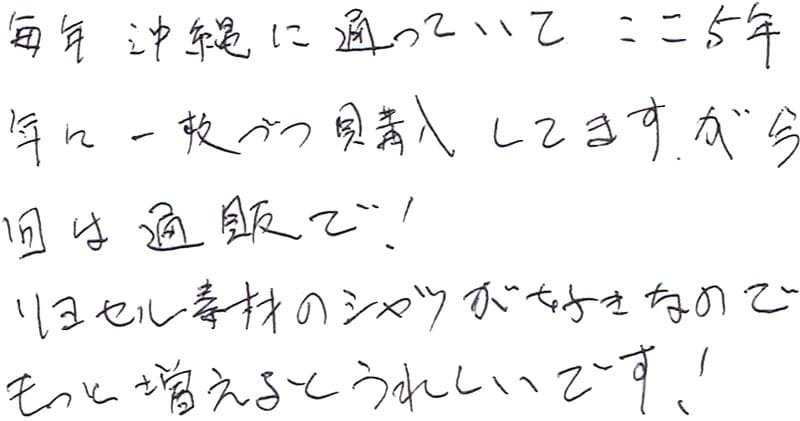 毎年 沖縄に 通っていて ここ5年
年に 一枚づつ購入 してます.が 今
回は 通販で!
リヨセル素材のシャツが好きなので
もっと増えるとうれしいです!